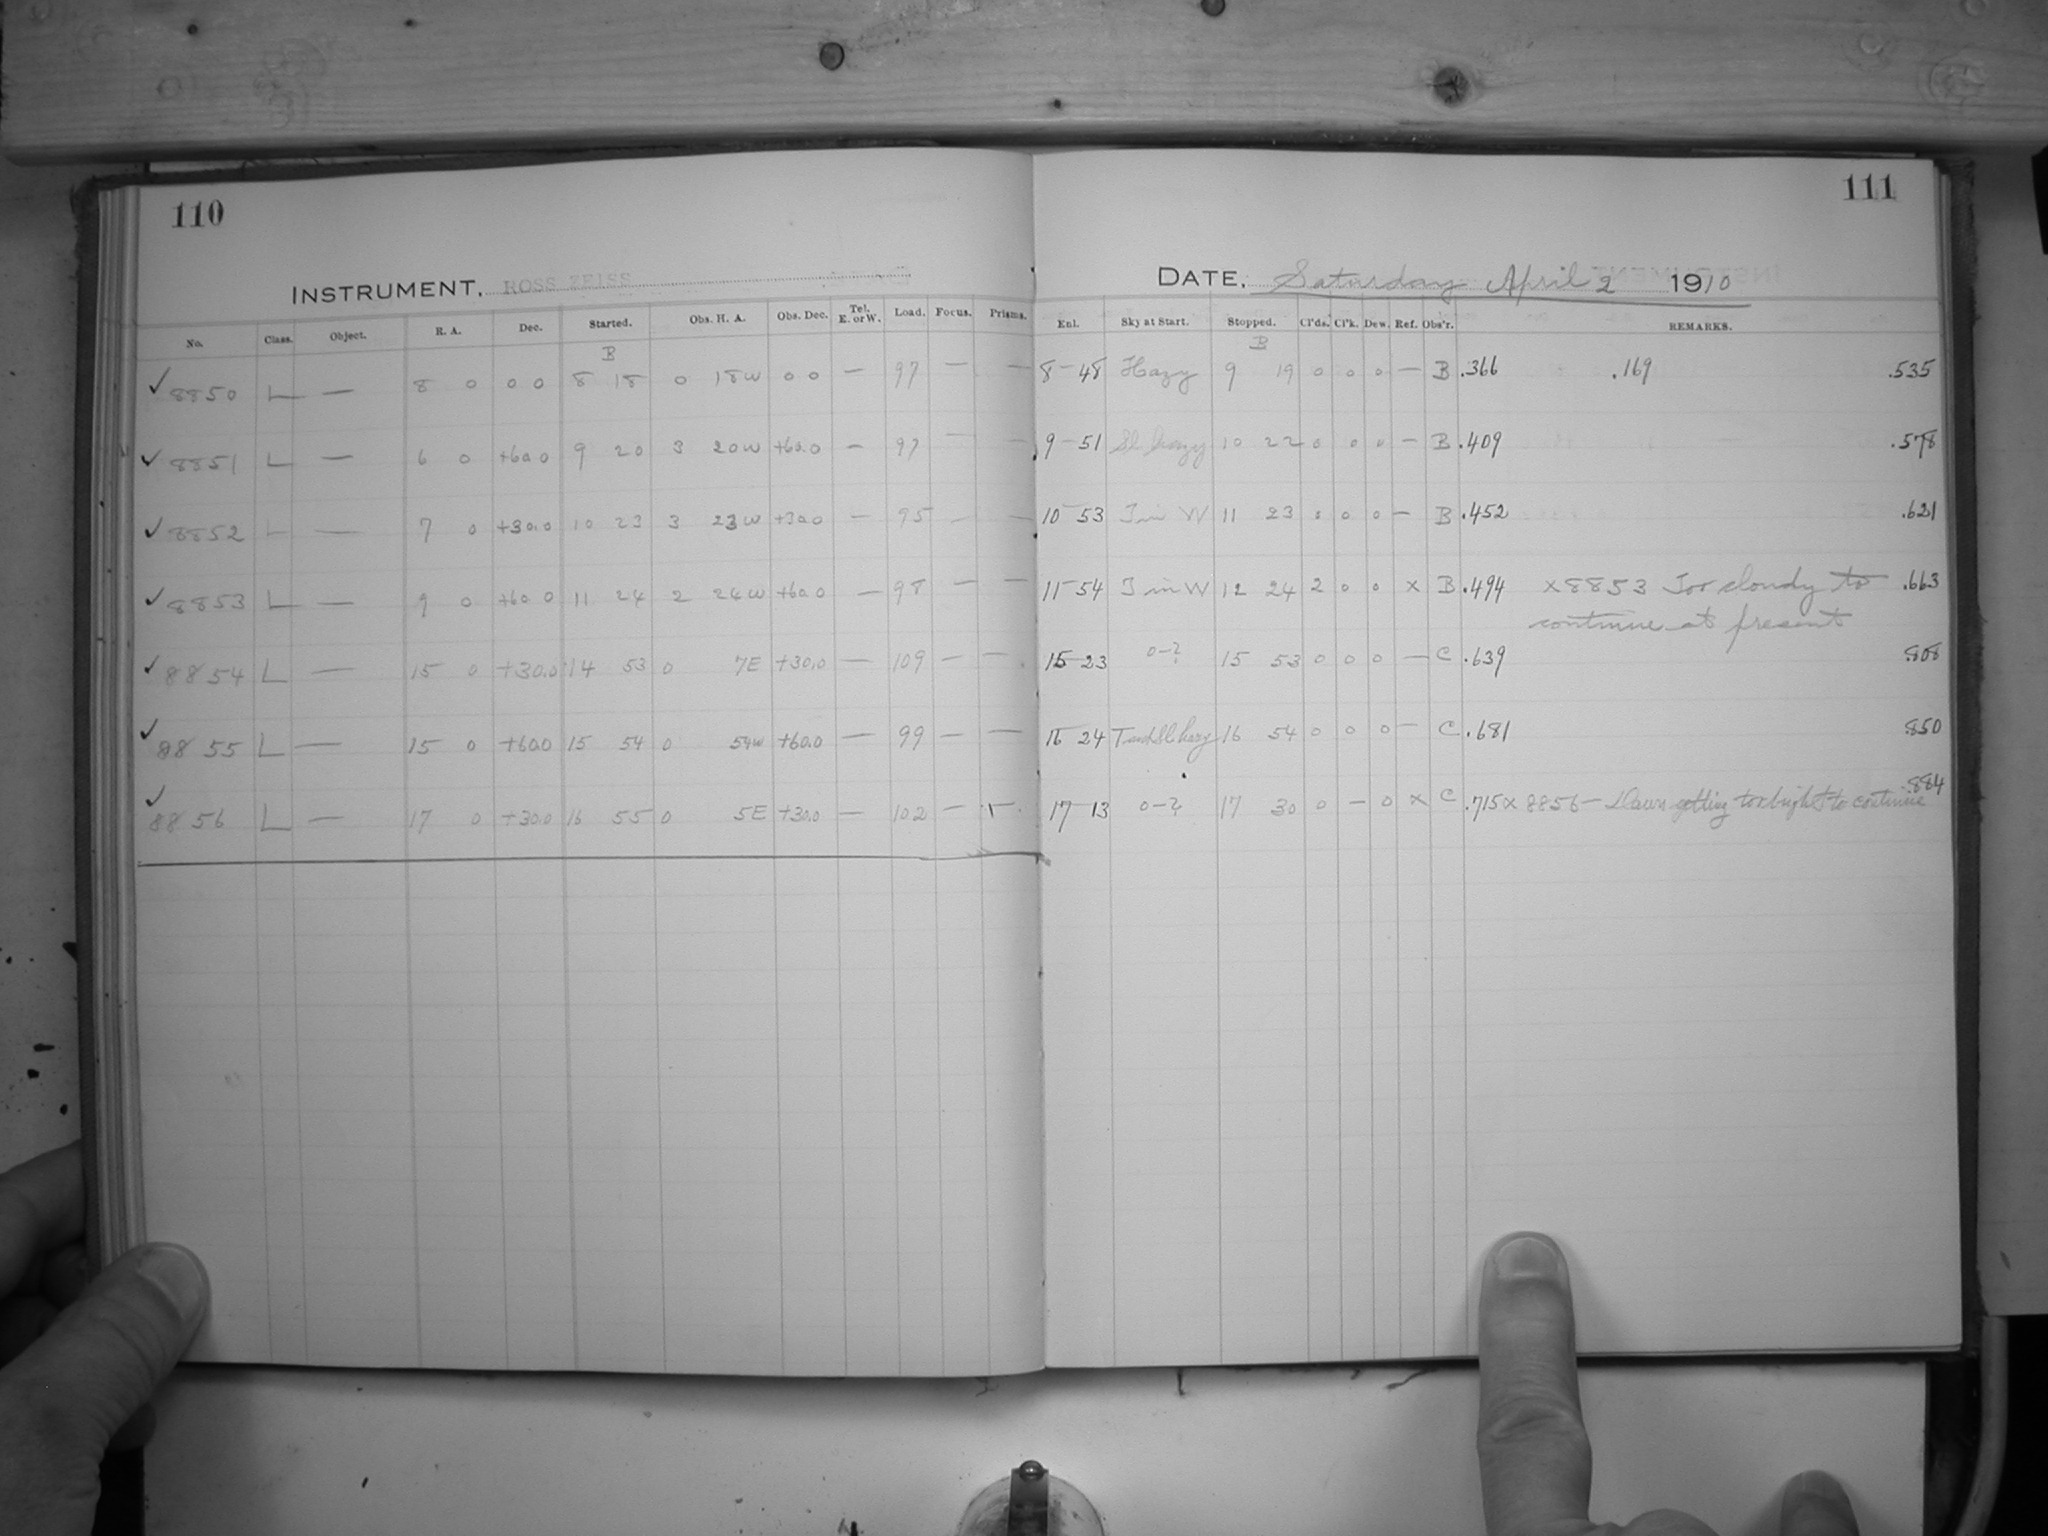 110
111
INSTRUMENT. ROSS ZEISS
DATE. Saturday April 2 1910
No. Class. Object. R. A. Dec. Started. Obs. H. A. Obs. Dec. Tel. E. or W. Load. Focus. Prisms. Enl. Sky at Start. Stopped. Cl'ds. Cl'k. Dew. Ref. Obs'r. REMARKS.
B B
✓ 8850 L — 8 0 0 0 8 18 0 18W 0 0 — 97 — — 8-48 Hazy 9 19 0 0 0 — B .366 .169 .535
✓ 8851 L — 6 0 +60.0 9 20 3 20W +60.0 — 97 — — 9-51 Sl. hazy 10 22 0 0 0 — B .409 .578
✓ 8852 L — 7 0 +30.0 10 23 3 23W +30.0 — 95 — — 10 53 T in W 11 23 0 0 — B .452 .621
✓ 8853 L — 9 0 +60.0 11 24 2 24W +60.0 — 98 — — 11-54 T in W 12 24 2 0 0 x B .494 x8853 Too cloudy to .663
continue at present
✓ 8854 L — 15 0 +30.0 14 53 0 7E +30.0 — 109 — — 15-23 0-? 15 53 0 0 0 — C .639 .808
✓ 8855 L — 15 0 +60.0 15 54 0 54W +60.0 — 99 — — 16 24 T and Sl. hazy 16 54 0 0 0 — C .681 .850
✓ 8856 L — 17 0 +30.0 16 55 0 5E +30.0 — 102 — — 17 13 0-? 17 30 0 — 0 x C .715 x 8856 — Dawn getting too bright to continue .884